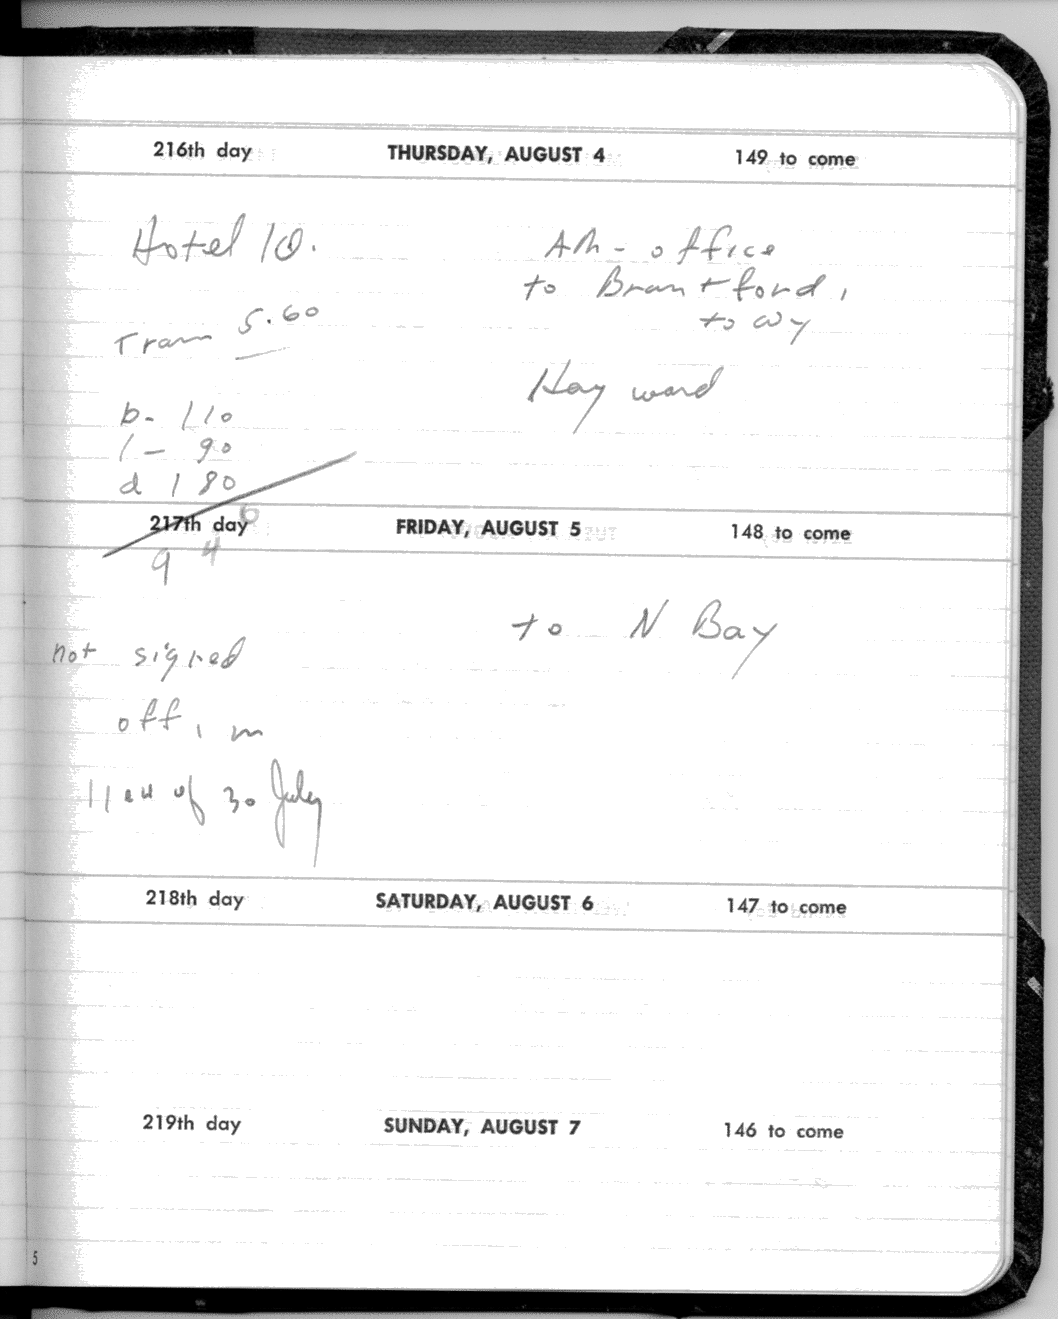 216th day THURSDAY, AUGUST 4 149 to come
Hotel 10.
AM - office
to Brantford,
to wy
Train 5.60
Hayward
b- 110
l - 90
d 180
217th day FRIDAY, AUGUST 5 148 to come
6
9 4
to N Bay
not signed
off, in
lieu of 30 July
218th day SATURDAY, AUGUST 6 147 to come
219th day SUNDAY, AUGUST 7 146 to come
5